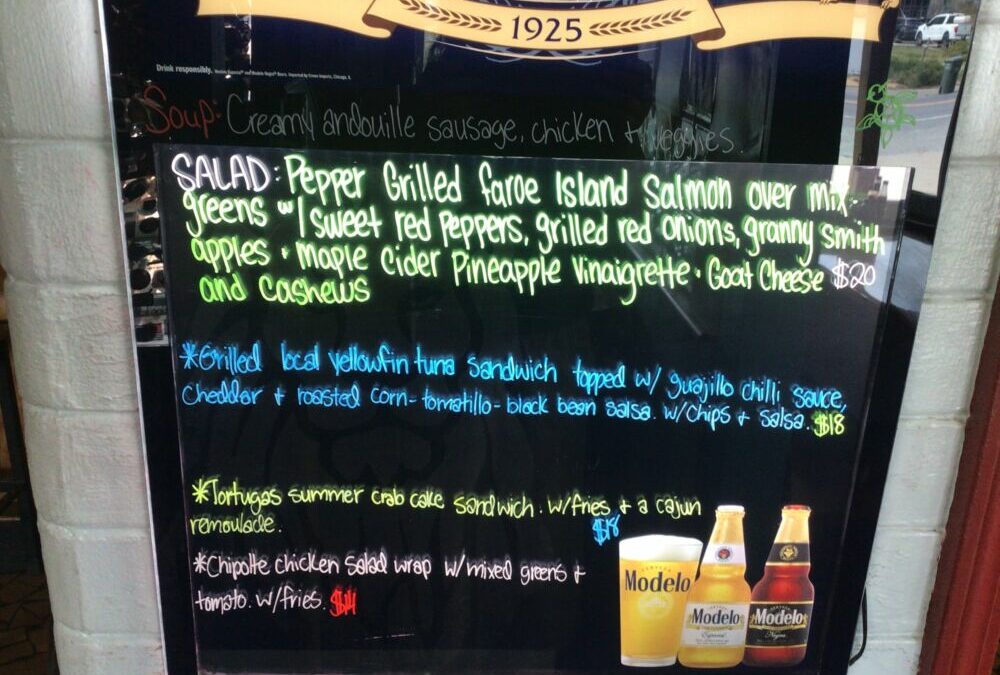 1925
Drink responsibly.
Soup: Creamy andouille sausage, chicken + veggies.
SALAD: Pepper Grilled faroe Island Salmon over mix
greens w/ sweet red peppers, grilled red onions, granny smith
apples · maple Cider Pineapple Vinaigrette · Goat Cheese $20
and cashews
*Grilled local yellowfin tuna sandwich topped w/ guajillo chilli sauce,
cheddar + roasted corn-tomatillo-black bean salsa. w/chips + salsa. $18
*Tortugas summer crab cake sandwich. w/fries + a cajun
remoulade. $18
*Chipotle chicken salad wrap w/mixed greens +
tomato. w/fries. $14
Modelo
Modelo
Especial
Modelo
Negra